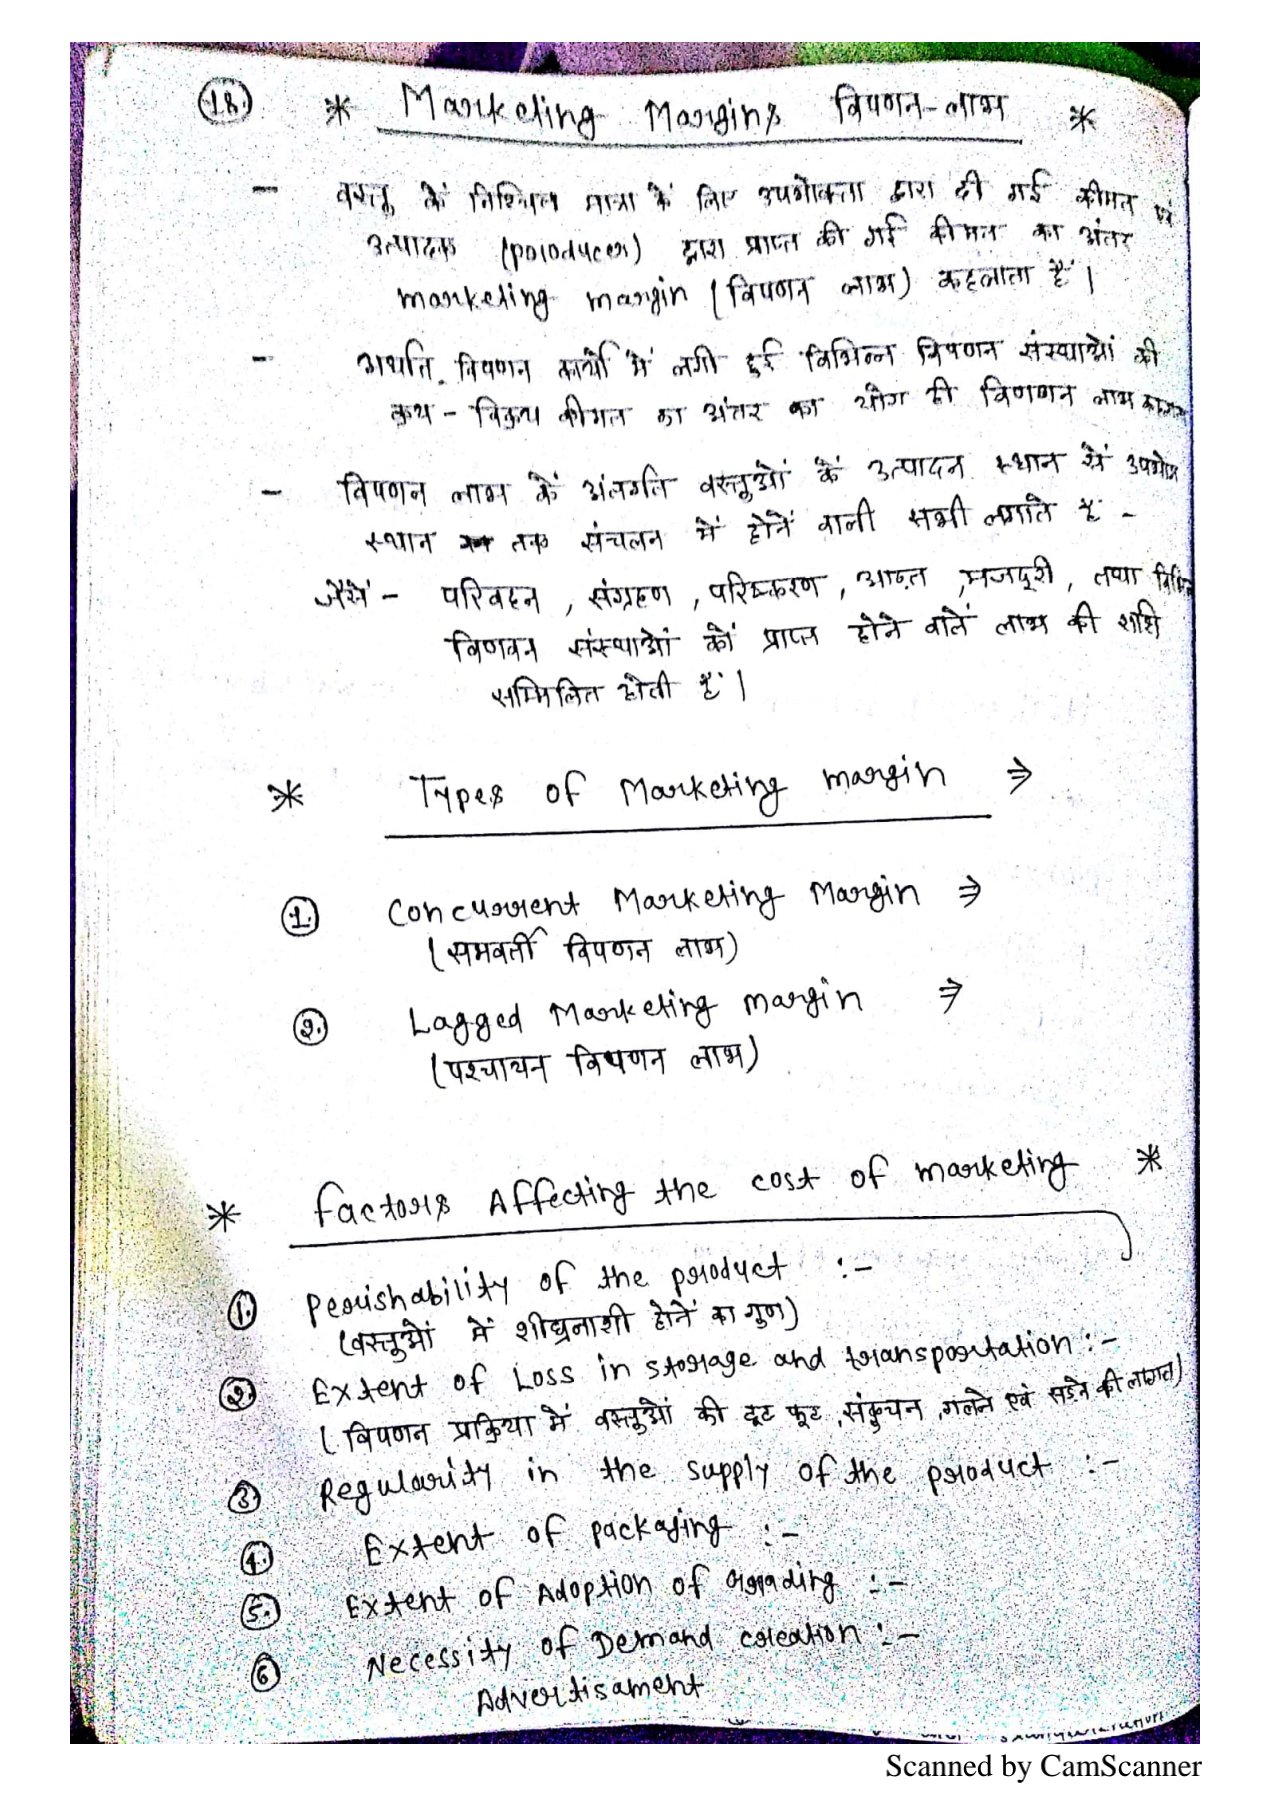 18.
* Marketing Margins विपणन-लाभ *
- वस्तु कें निश्चित मात्रा कें लिए उपभोक्ता द्वारा दी गई कीमत एवं
उत्पादक (producer) द्वारा प्राप्त की गई कीमत का अंतर
marketing margin (विपणन लाभ) कहलाता हैं।
- अर्थात विपणन कार्यो में लगी हुई विभिन्न विपणन संस्थाओं की
क्रय - विक्रय कीमत का अंतर का योग ही विणणन लाभ
- विपणन लाभ कें अंतर्गत वस्तुओं कें उत्पादन स्थान सें उपभोग
स्थान तक संचलन में होनें वाली सभी लगाते हैं -
जैसें - परिवहन , संग्रहण , परिष्करण , आढ़त , मजदूरी , तथा विभिन्न
विणवन संस्थाओं कों प्राप्त होने वालें लाभ की राशि
सम्मिलित होती हैं।
* Types of Marketing margin ⇒
1. Concurrent Marketing Margin ⇒
(समवर्ती विपणन लाभ)
2. Lagged Marketing margin ⇒
(पश्चायन विपणन लाभ)
* factors Affecting the cost of marketing *
1. Perishability of the product :-
(वस्तुओं में शीघ्रनाशी होनें का गुण)
2. Extent of Loss in storage and transportation :-
( विपणन प्रक्रिया में वस्तुओं की टूट फूट , संकुचन , गलने एवं सडने की लागत)
3. Regularity in the supply of the product :-
4. Extent of packaging :-
5. Extent of Adoption of grading :-
6 Necessity of Demand creation :-
Advertisament
Scanned by CamScanner